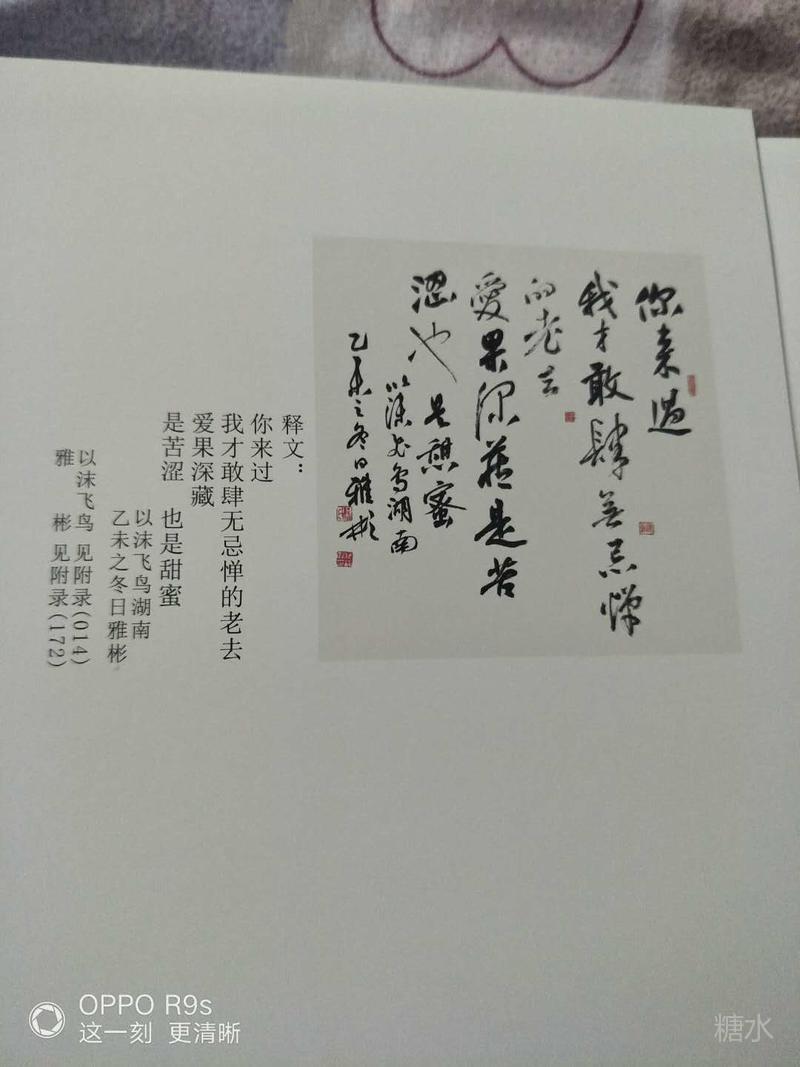 你来过
我才敢肆无忌惮
的老去
爱果深藏是苦
涩也是甜蜜
以沫飞鸟湖南
乙未之冬日雅彬
释文：
你来过
我才敢肆无忌惮的老去
爱果深藏
是苦涩 也是甜蜜
以沫飞鸟湖南
乙未之冬日雅彬
以沫飞鸟 见附录(014)
雅 彬 见附录(172)
OPPO R9s
这一刻 更清晰
糖水